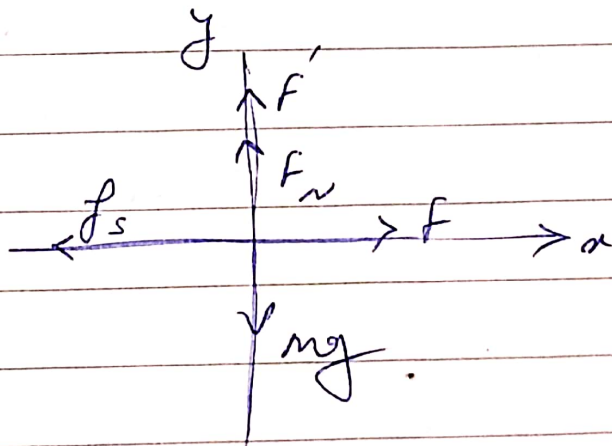 y
F'
F_N
f_s
F
x
mg